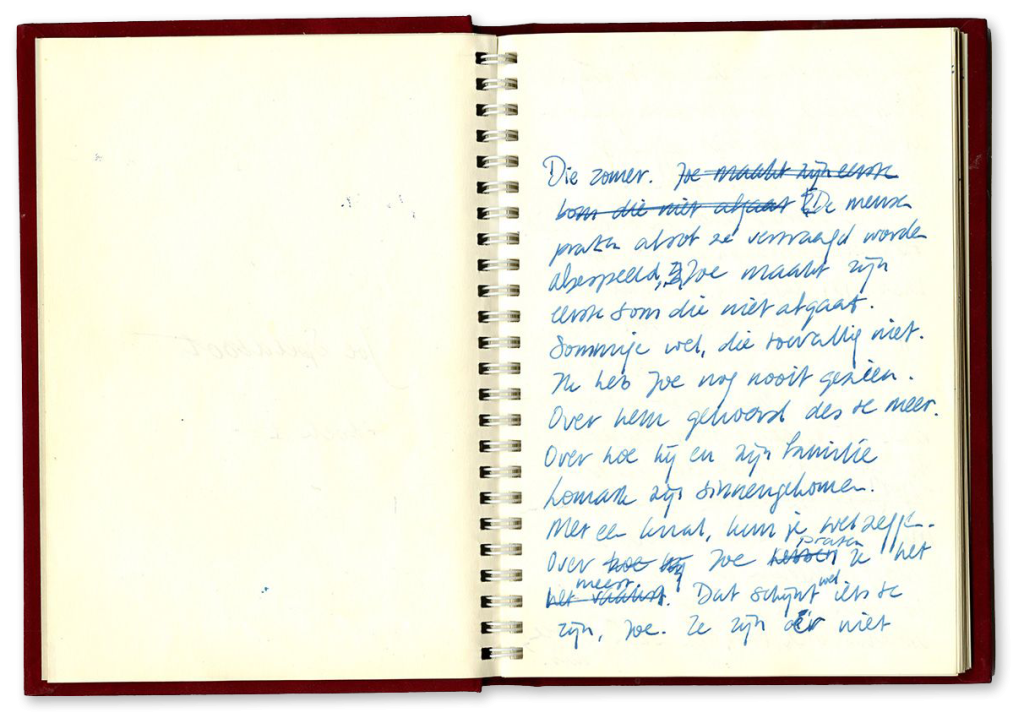 Die zomer. Joe maakt zijn eerste
bom die niet afgaat De mensen
praten alsof ze vertraagd worden
afgespeeld, Joe maakt zijn
eerste bom die niet afgaat.
Sommige wel, die toevallig niet.
Ik heb Joe nog nooit gezien.
Over hem gehoord des te meer.
Over hoe hij en zijn familie
Lomark zijn binnengekomen.
Met een knal, kun je wel zeggen.
praten
Over hoe hij Joe hebben ze het
meest wel
het vaakst. Dat schijnt iets te
zijn, Joe. Ze zijn er niet